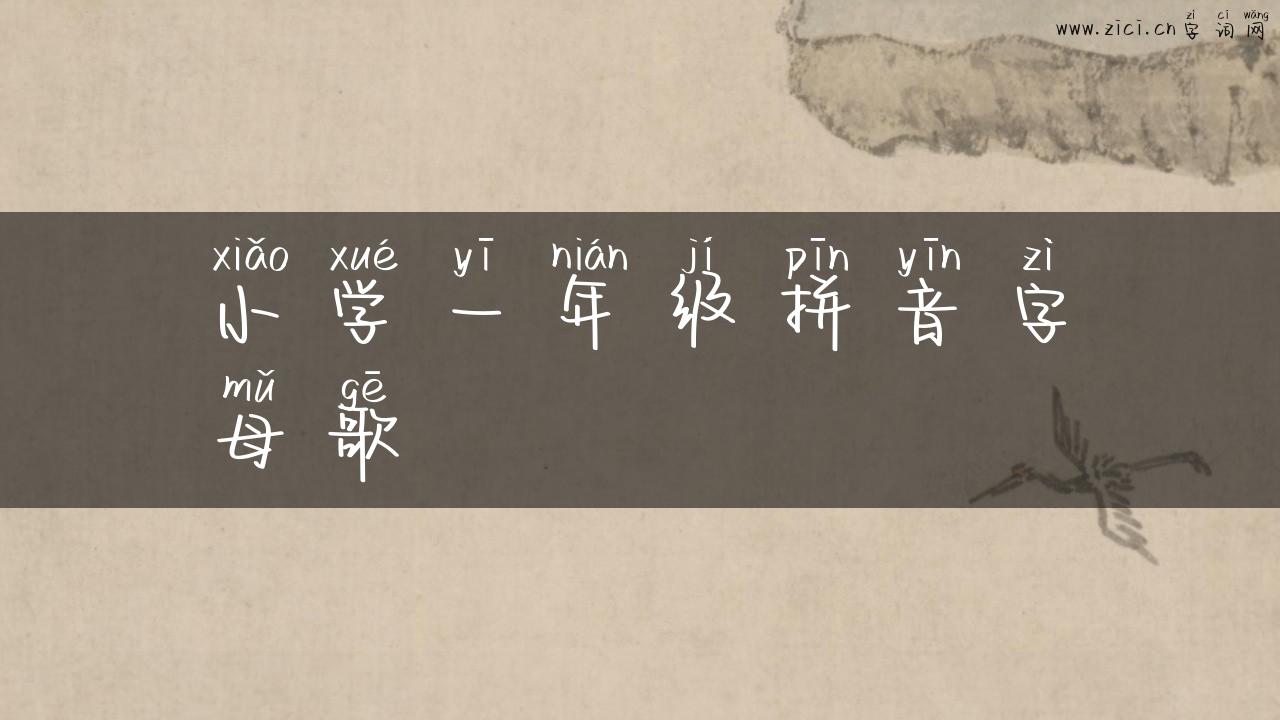 zì cí wǎng
www.zici.cn 字 词 网
xiǎo xué yī nián jí pīn yīn zì
小 学 一 年 级 拼 音 字
mǔ gē
母 歌